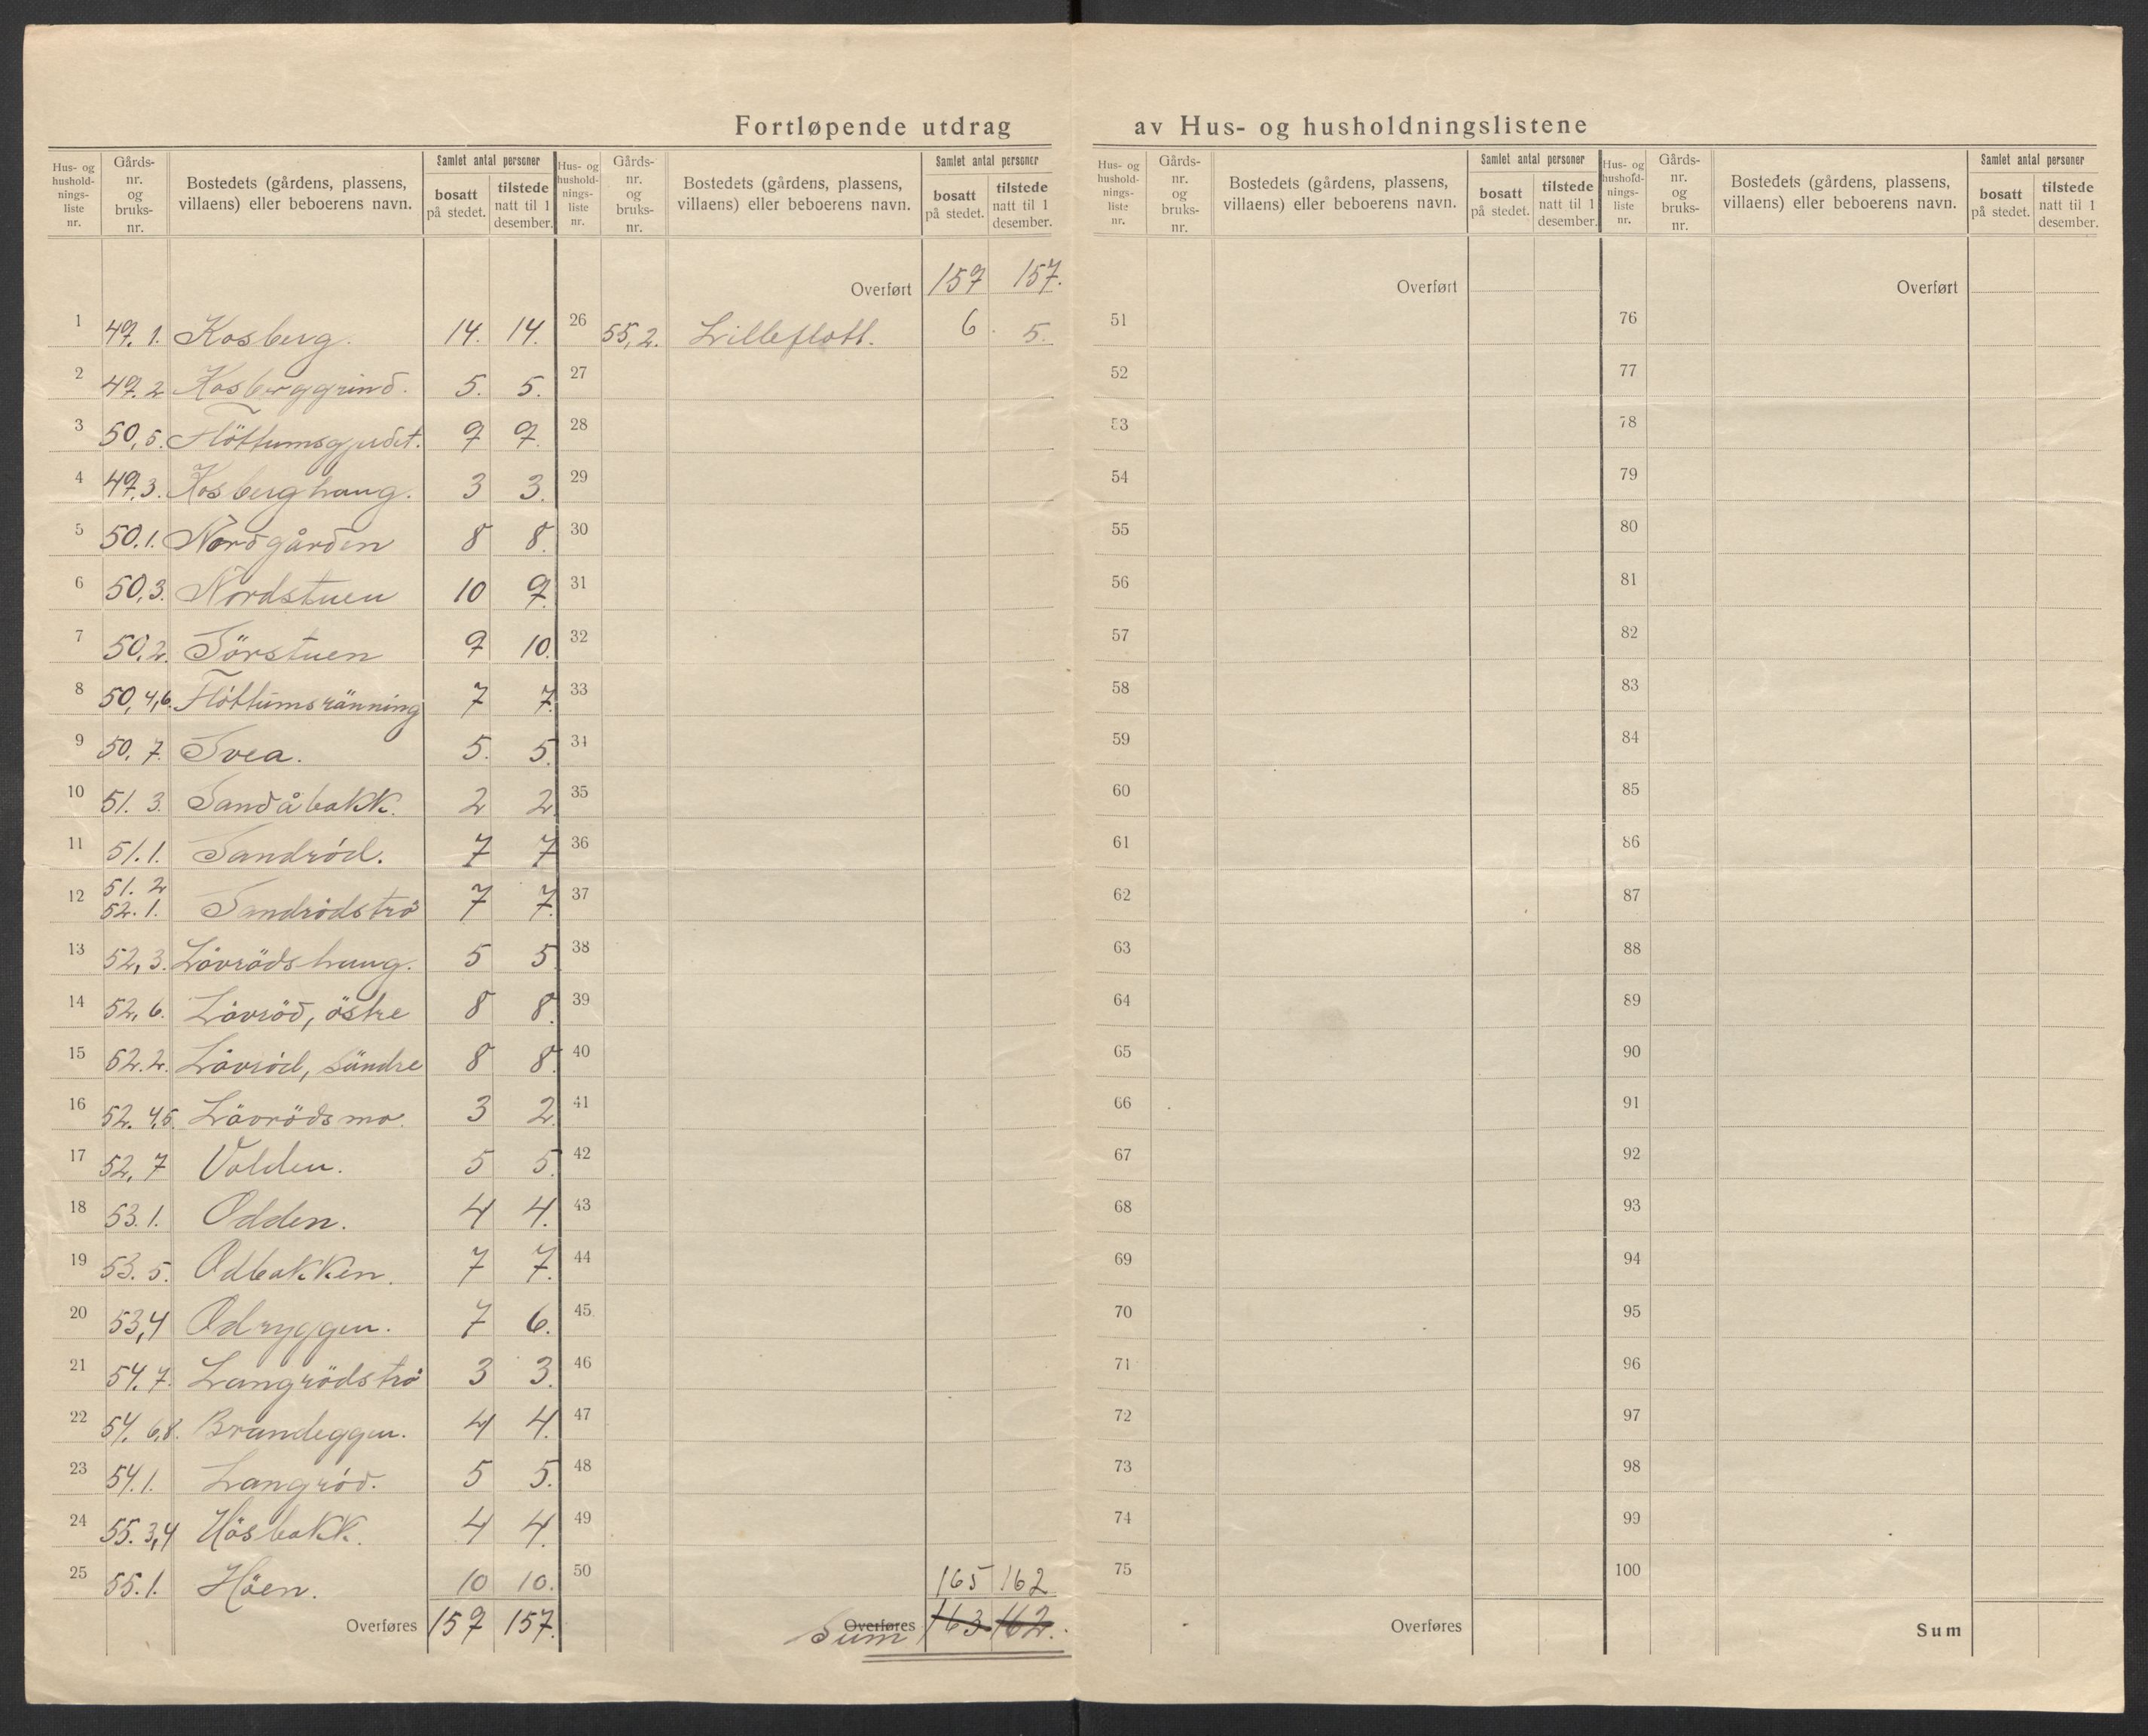 Fortløpende utdrag av Hus- og husholdningslistene
Hus- og hushold-nings-liste nr. Gårds-nr. og bruks-nr. Bostedets (gårdens, plassens, villaens) eller beboerens navn. Samlet antal personer bosatt på stedet. tilstede natt til 1 desember.
1 49. 1. Kosberg. 14. 14.
2 49. 2 Kosberggrind. 5. 5.
3 50, 5. Flöttumsgjerdet. 9 9.
4 49, 3. Kosberghaug. 3 3.
5 50. 1. Nordgården 8 8.
6 50, 3. Nordstuen 10 9.
7 50, 2. Sörstuen 9 10.
8 50, 4,6. Flöttumsränning 7 7.
9 50. 7. Svea. 5. 5.
10 51. 3. Sandåbakk. 2 2
11 51. 1. Sandröd. 7 7
12 51. 2 52. 1. Sandrödströ 7 7.
13 52, 3. Lövrödshaug. 5 5
14 52, 6. Lövröd, östre 8 8.
15 52. 2. Lövröd, söndre 8 8.
16 52. 4,5. Lövrödsmo. 3 2
17 52, 7 Volden. 5 5.
18 53. 1. Odden. 4 4.
19 53. 5. Odbakken. 7 7.
20 53, 4 Odryggen. 7 6.
21 54. 7. Langrödströ 3 3.
22 54. 6,8. Brandeggen. 4 4.
23 54. 1. Langröd. 5 5.
24 55. 3,4 Hösbakk. 4 4.
25 55. 1. Höen. 10 10.
Overføres 159 157.
Hus- og hushold-nings-liste nr. Gårds-nr. og bruks-nr. Bostedets (gårdens, plassens, villaens) eller beboerens navn. Samlet antal personer bosatt på stedet. tilstede natt til 1 desember.
Overført 159 157.
26 55, 2. Lilleflott. 6. 5.
27
28
29
30
31
32
33
34
35
36
37
38
39
40
41
42
43
44
45
46
47
48
49
50 165 162
Overføres Sum 163 162.
Hus- og hushold-nings-liste nr. Gårds-nr. og bruks-nr. Bostedets (gårdens, plassens, villaens) eller beboerens navn. Samlet antal personer bosatt på stedet. tilstede natt til 1 desember.
Overført
51
52
53
54
55
56
57
58
59
60
61
62
63
64
65
66
67
68
69
70
71
72
73
74
75
Overføres
Hus- og hushold-nings-liste nr. Gårds-nr. og bruks-nr. Bostedets (gårdens, plassens, villaens) eller beboerens navn. Samlet antal personer bosatt på stedet. tilstede natt til 1 desember.
Overført
76
77
78
79
80
81
82
83
84
85
86
87
88
89
90
91
92
93
94
95
96
97
98
99
100
Sum